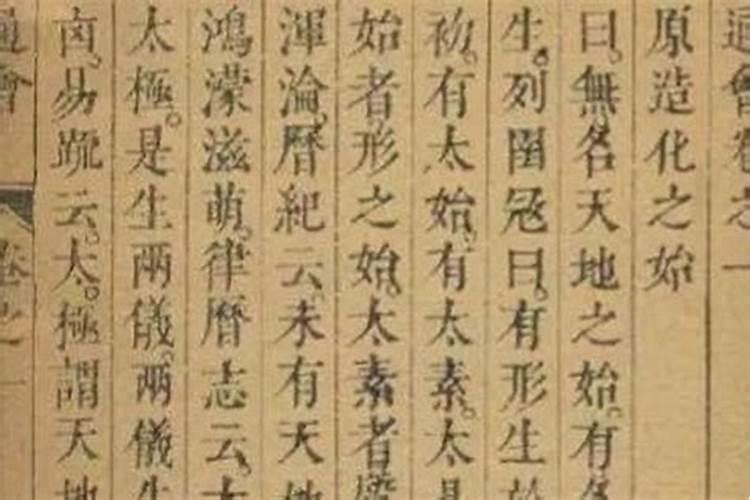 通會卷之一
原造化之始
曰。無名天地之始。有名
生。列圄冦曰。有形生於
礽。有太始。有太素。太易
始者形之始。太素者
渾淪。曆紀云。未有天地
鴻濛滋萌。律曆志云。太
太極。是生兩儀。兩儀生
卤。易䟽云。太。極謂天地
卷之一